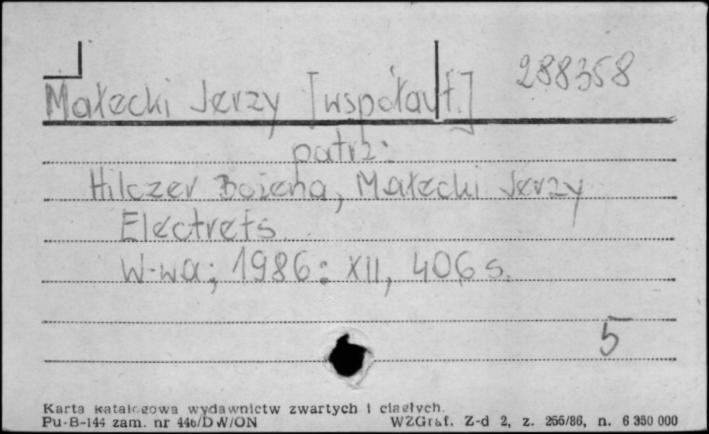 288358
Małecki Jerzy [współaut.]
patrz:
Hilczer Bożena, Małecki Jerzy
Electrets.
W-wa; 1986: XII, 406 s.
5
Karta katalogowa wydawnictw zwartych i ciągłych.
Pu-B-144 zam. nr 446/DW/ON WZGraf. Z-d 2, z. 266/86, n. 6 350 000